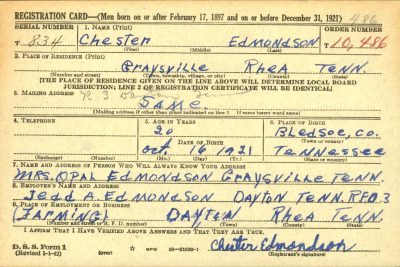 REGISTRATION CARD—(Men born on or after February 17, 1897 and on or before December 31, 1921) 486
SERIAL NUMBER 1. NAME (Print) ORDER NUMBER
T 834 Chester Edmondson 10,486
(First) (Middle) (Last)
2. PLACE OF RESIDENCE (Print)
Graysville Rhea Tenn.
(Number and street) (Town, township, village, or city) (County) (State)
[THE PLACE OF RESIDENCE GIVEN ON THE LINE ABOVE WILL DETERMINE LOCAL BOARD
JURISDICTION; LINE 2 OF REGISTRATION CERTIFICATE WILL BE IDENTICAL]
3. MAILING ADDRESS
SAME.
[Mailing address if other than place indicated on line 2. If same insert word same]
4. TELEPHONE 5. AGE IN YEARS 6. PLACE OF BIRTH
20 Bledsoe, co.
DATE OF BIRTH (Town or county)
Oct. 16 1921 Tennessee
(Exchange) (Number) (Mo.) (Day) (Yr.) (State or country)
7. NAME AND ADDRESS OF PERSON WHO WILL ALWAYS KNOW YOUR ADDRESS
MRS. OPAL Edmondson Graysville Tenn.
8. EMPLOYER'S NAME AND ADDRESS
Jedd A. Edmondson Dayton Tenn. R.F.D. 3
9. PLACE OF EMPLOYMENT OR BUSINESS
(FARMING) Dayton Rhea Tenn.
(Number and street or R. F. D. number) (Town) (County) (State)
I AFFIRM THAT I HAVE VERIFIED ABOVE ANSWERS AND THAT THEY ARE TRUE.
D. S. S. Form 1
(Revised 1-1-42) (over) GPO 16—21630-1 Chester Edmondson
(Registrant's signature)